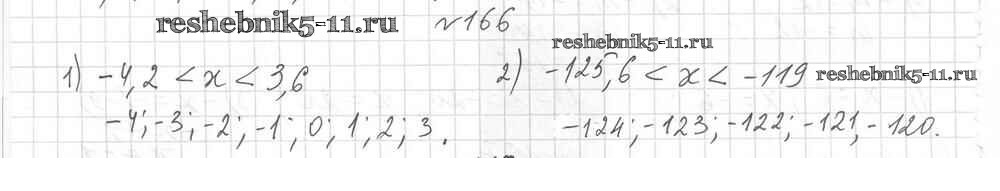 reshebnik5-11.ru №166
reshebnik5-11.ru
1) -4,2 < x < 3,6 2) -125,6 < x < -119 reshebnik5-11.ru
-4; -3; -2; -1; 0; 1; 2; 3. -124; -123; -122; -121, -120.